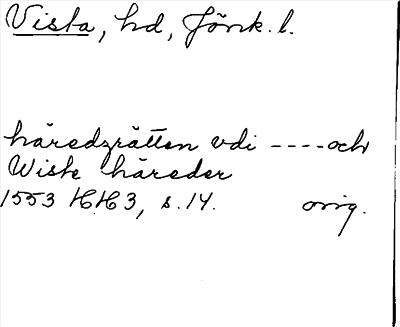 Vista, hd, Jönk. l.
häredzrätten vdi ----och
Wiste häreder
1553 HH3, s.14. orig.